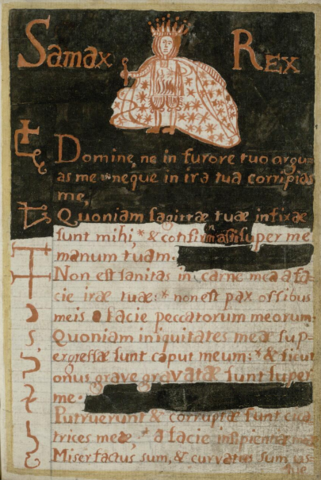 Samax Rex
Domine, ne in furore tuo argu
as me neque in ira tua corripias
me,
Quoniam sagittæ tuæ infixæ
sunt mihi, * & confirmasti super me
manum tuam.
Non est sanitas in carne mea a fa
cie iræ tuæ: * non est pax ossibus
meis a facie peccatorum meorum:
Quoniam iniquitates meæ sup-
ergressæ sunt caput meum: * & sicut
onus grave gravatæ sunt super
me.
Putruerunt & corruptæ sunt cica
trices meæ, * a facie insipientiæ meæ
Miser factus sum, & curvatus sum us
que